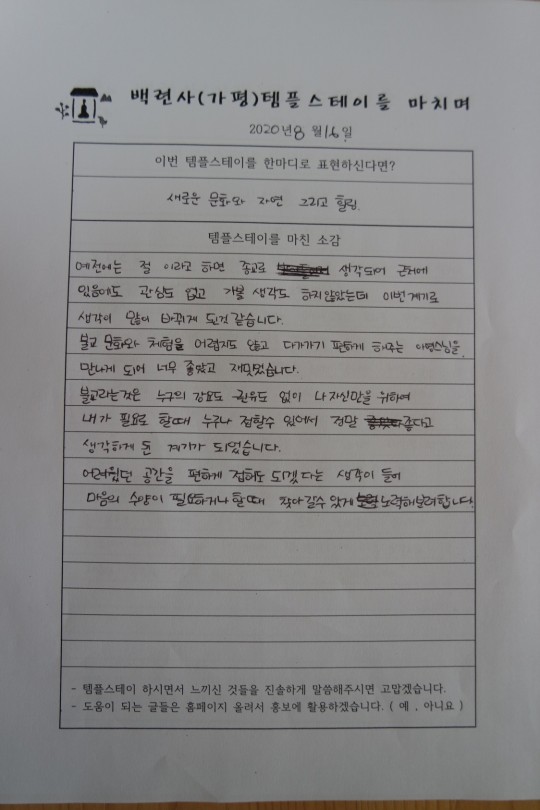 백련사(가평)템플스테이를 마치며
2020년 8월 16일
이번 템플스테이를 한마디로 표현하신다면?
새로운 문화와 자연 그리고 힐링.
템플스테이를 마친 소감
예전에는 절 이라고 하면 종교로 생각되어 근처에
있음에도 관심도 없고 가볼 생각도 하지않았는데 이번계기로
생각이 많이 바뀌게 된것 같습니다.
불교 문화와 체험을 어렵지도 않고 다가가기 편하게 해주는 스님을
만나게 되어 너무 좋았고 재밌었습니다.
불교라는것은 누구의 강요도 권유도 없이 나 자신만을 위하여
내가 필요로 할때 누구나 접할수 있어서 정말 좋다고
생각하게 된 계기가 되었습니다.
어려웠던 공간을 편하게 접해도 되겠다는 생각이 들어
마음의 수양이 필요하거나 할때 찾아갈수 있게 노력해보려합니다.
- 템플스테이 하시면서 느끼신 것들을 진솔하게 말씀해주시면 고맙겠습니다.
- 도움이 되는 글들은 홈페이지 올려서 홍보에 활용하겠습니다. ( 예 , 아니요 )